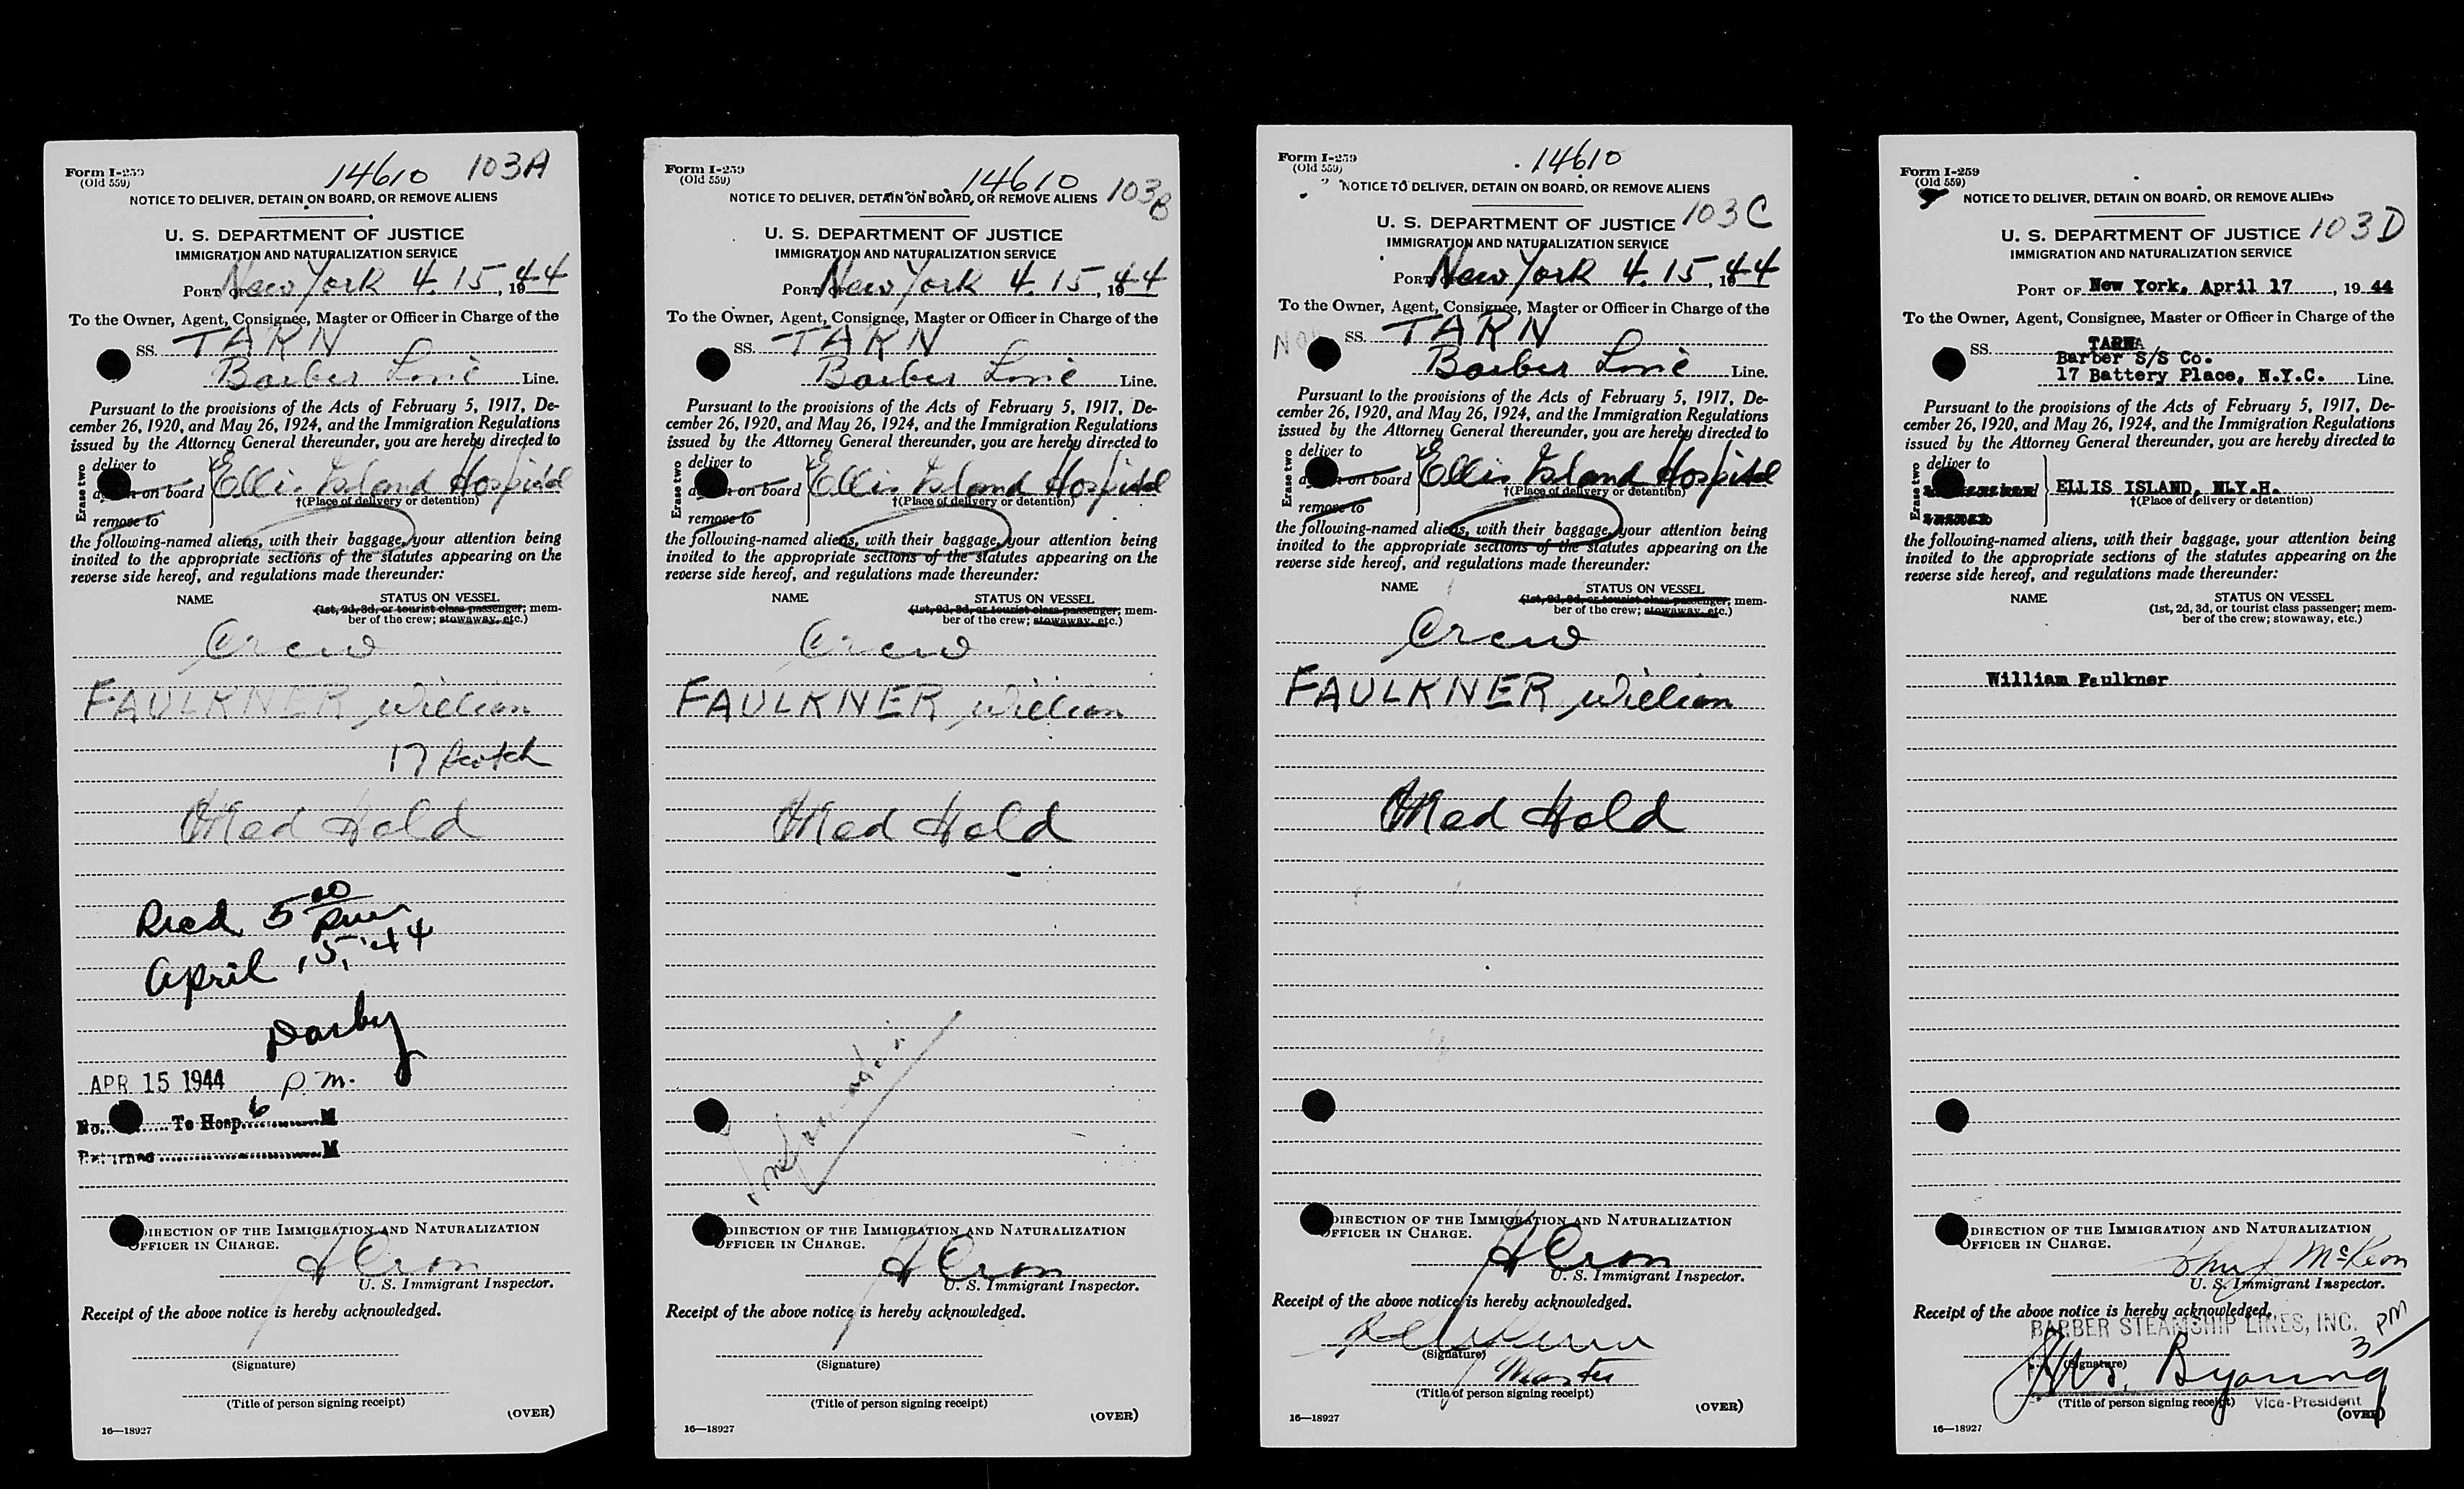 Form I-259
(Old 559)
14610 103A
NOTICE TO DELIVER, DETAIN ON BOARD, OR REMOVE ALIENS
U. S. DEPARTMENT OF JUSTICE
IMMIGRATION AND NATURALIZATION SERVICE
PORT OF New York 4.15, 1944
To the Owner, Agent, Consignee, Master or Officer in Charge of the
SS. TARN
Barber Line Line.
Pursuant to the provisions of the Acts of February 5, 1917, De-
cember 26, 1920, and May 26, 1924, and the Immigration Regulations
issued by the Attorney General thereunder, you are hereby directed to
Erase two
deliver to
on board Ellis Island Hospital
†(Place of delivery or detention)
remove to
the following-named aliens, with their baggage, your attention being
invited to the appropriate sections of the statutes appearing on the
reverse side hereof, and regulations made thereunder:
NAME STATUS ON VESSEL
(1st, 2d, 3d, or tourist class passenger; mem-
ber of the crew; stowaway, etc.)
Crew
FAULKNER William
17 Scotch
Med Hold
Recd. 5 00 pm
April 15, '44
Darby
APR 15 1944 P.M.
No. To Hosp. 6 M
Returned M
DIRECTION OF THE IMMIGRATION AND NATURALIZATION
OFFICER IN CHARGE.
U. S. Immigrant Inspector.
Receipt of the above notice is hereby acknowledged.
(Signature)
(Title of person signing receipt)
(OVER)
16—18927
Form I-259
(Old 559)
14610 103B
NOTICE TO DELIVER, DETAIN ON BOARD, OR REMOVE ALIENS
U. S. DEPARTMENT OF JUSTICE
IMMIGRATION AND NATURALIZATION SERVICE
PORT OF New York 4.15, 1944
To the Owner, Agent, Consignee, Master or Officer in Charge of the
SS. TARN
Barber Line Line.
Pursuant to the provisions of the Acts of February 5, 1917, De-
cember 26, 1920, and May 26, 1924, and the Immigration Regulations
issued by the Attorney General thereunder, you are hereby directed to
Erase two
deliver to
on board Ellis Island Hospital
†(Place of delivery or detention)
remove to
the following-named aliens, with their baggage, your attention being
invited to the appropriate sections of the statutes appearing on the
reverse side hereof, and regulations made thereunder:
NAME STATUS ON VESSEL
(1st, 2d, 3d, or tourist class passenger; mem-
ber of the crew; stowaway, etc.)
Crew
FAULKNER William
Med Hold
Information
DIRECTION OF THE IMMIGRATION AND NATURALIZATION
OFFICER IN CHARGE.
U. S. Immigrant Inspector.
Receipt of the above notice is hereby acknowledged.
(Signature)
(Title of person signing receipt)
(OVER)
16—18927
Form I-259
(Old 559)
14610
NOTICE TO DELIVER, DETAIN ON BOARD, OR REMOVE ALIENS
U. S. DEPARTMENT OF JUSTICE 103C
IMMIGRATION AND NATURALIZATION SERVICE
PORT OF New York 4.15, 1944
To the Owner, Agent, Consignee, Master or Officer in Charge of the
SS. TARN
Barber Line Line.
Pursuant to the provisions of the Acts of February 5, 1917, De-
cember 26, 1920, and May 26, 1924, and the Immigration Regulations
issued by the Attorney General thereunder, you are hereby directed to
Erase two
deliver to
on board Ellis Island Hospital
†(Place of delivery or detention)
remove to
the following-named aliens, with their baggage, your attention being
invited to the appropriate sections of the statutes appearing on the
reverse side hereof, and regulations made thereunder:
NAME STATUS ON VESSEL
(1st, 2d, 3d, or tourist class passenger; mem-
ber of the crew; stowaway, etc.)
Crew
FAULKNER William
Med Hold
DIRECTION OF THE IMMIGRATION AND NATURALIZATION
OFFICER IN CHARGE.
U. S. Immigrant Inspector.
Receipt of the above notice is hereby acknowledged.
(Signature)
Master
(Title of person signing receipt)
(OVER)
16—18927
Form I-259
(Old 559)
NOTICE TO DELIVER, DETAIN ON BOARD, OR REMOVE ALIENS
103D
U. S. DEPARTMENT OF JUSTICE
IMMIGRATION AND NATURALIZATION SERVICE
PORT OF New York, April 17, 19 44
To the Owner, Agent, Consignee, Master or Officer in Charge of the
SS. TARNA
Barber S/S Co.
17 Battery Place, N.Y.C. Line.
Pursuant to the provisions of the Acts of February 5, 1917, De-
cember 26, 1920, and May 26, 1924, and the Immigration Regulations
issued by the Attorney General thereunder, you are hereby directed to
Erase two
deliver to
ELLIS ISLAND, N.Y.H.
†(Place of delivery or detention)
the following-named aliens, with their baggage, your attention being
invited to the appropriate sections of the statutes appearing on the
reverse side hereof, and regulations made thereunder:
NAME STATUS ON VESSEL
(1st, 2d, 3d, or tourist class passenger; mem-
ber of the crew; stowaway, etc.)
William Faulkner
DIRECTION OF THE IMMIGRATION AND NATURALIZATION
OFFICER IN CHARGE.
John McKeon
U. S. Immigrant Inspector.
Receipt of the above notice is hereby acknowledged.
BARBER STEAMSHIP LINES, INC. 3 PM
(Signature)
(Title of person signing receipt) Vice-President
(OVER)
16—18927